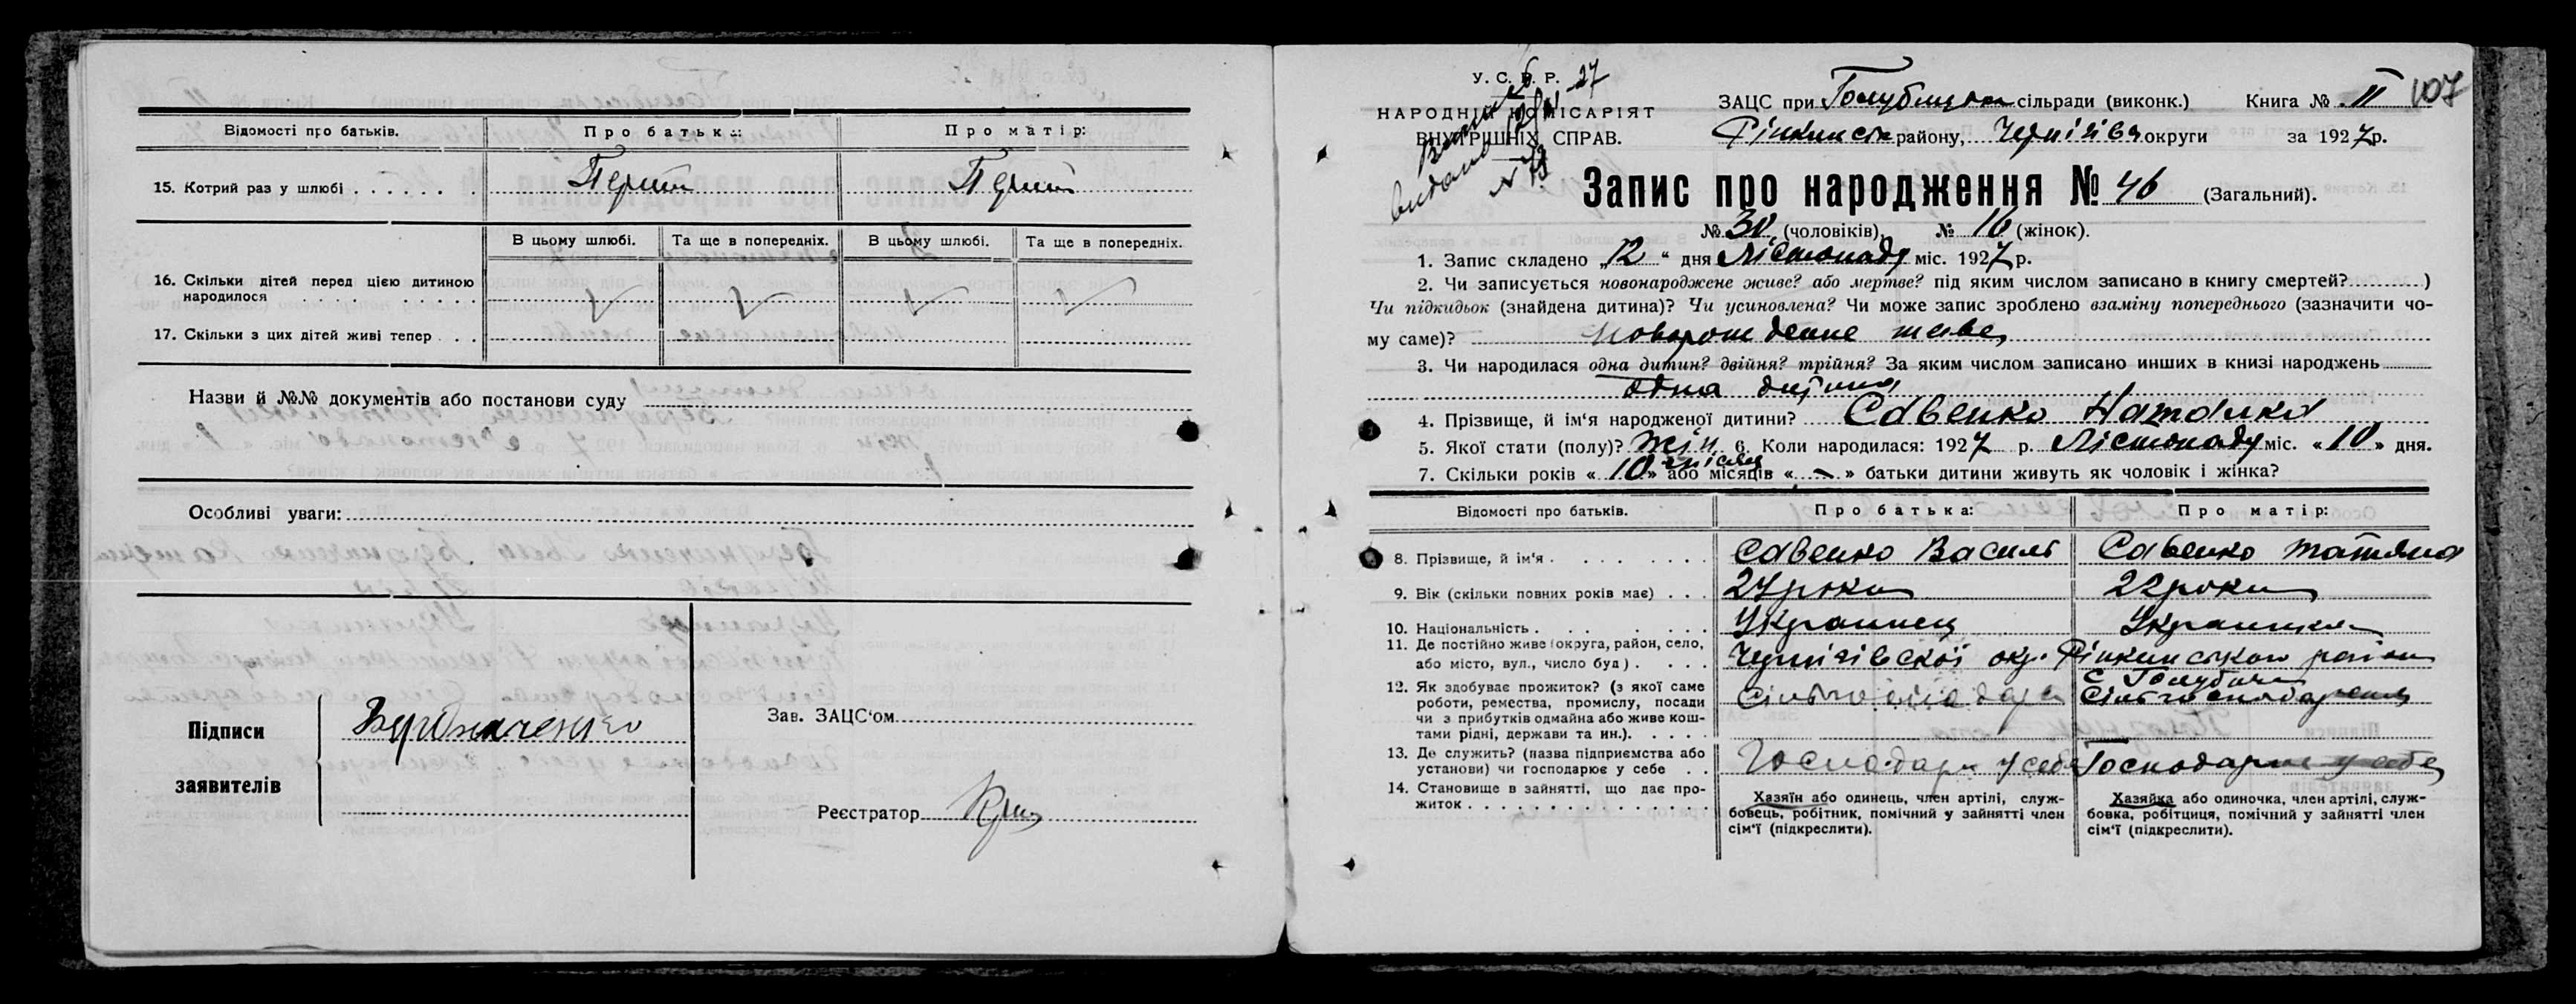 Відомості про батьків. Про батька: Про матір:
15. Котрий раз у шлюбі . . . . . . . Перший Перший
В цьому шлюбі. Та ще в попередніх. В цьому шлюбі. Та ще в попередніх.
16. Скільки дітей перед цією дитиною
народилося . . . . . . . . .
17. Скільки з цих дітей живі тепер . . .
Назви й №№ документів або постанови суду
Особливі уваги:
Підписи
заявителів
Зав. ЗАЦС‘ом
Реєстратор
У. С. Р. Р.
НАРОДНІЙ КОМІСАРІЯТ
ВНУТРІШНІХ СПРАВ.
27
видано
ЗАЦС при сільради (виконк.) Книга № II 107
району, округи за 1927р.
Запис про народження № 46 (Загальний).
№ 30 (чоловіків), № 16 (жінок).
1. Запис складено „12“ дня Лістопаду міс. 1927 р.
2. Чи записується новонароджене живе? або мертве? під яким числом записано в книгу смертей? )
Чи підкидьок (знайдена дитина)? Чи усиновлена? Чи може запис зроблено взаміну попереднього (зазначити чо-
му саме)? живе
3. Чи народилася одна дитин? двійня? трійня? За яким числом записано инших в книзі народжень
одна дитина
4. Прізвище, й ім‘я народженої дитини? Савенко Наталка
5. Якої стати (полу)? жін. 6. Коли народилася: 1927 р. Лістопаду міс. «10» дня.
7. Скільки років «10» або місяців « - » батьки дитини живуть як чоловік і жінка?
місяц
Відомості про батьків. Про батька: Про матір:
8. Прізвище, й ім‘я . . . . . . . Савенко Василь Савенко Татяна
9. Вік (скільки повних років має) . . . 24 роки 22 роки
10. Національність . . . . . . . Украинец Украинка
11. Де постійно живе (округа, район, село,
або місто, вул., число буд) . . . . Чернігівскої окр. Ріпкинського район
с. Голубичи
12. Як здобуває прожиток? (з якої саме
роботи, ремества, промислу, посади
чи з прибутків одмайна або живе кош-
тами рідні, держави та ин.). . . . .
13. Де служить? (назва підприємства або
установи) чи господарює у себе . . Господарь у себе Господарює у себе
14. Становище в зайнятті, що дає про-
житок . . . . . . . . . . . . . .
Хазяїн або одинець, член артілі, служ-
бовець, робітник, помічний у зайнятті член
сім‘ї (підкреслити).
Хазяйка або одиночка, член артілі, служ-
бовка, робітциця, помічний у зайнятті член
сім‘ї (підкреслити).